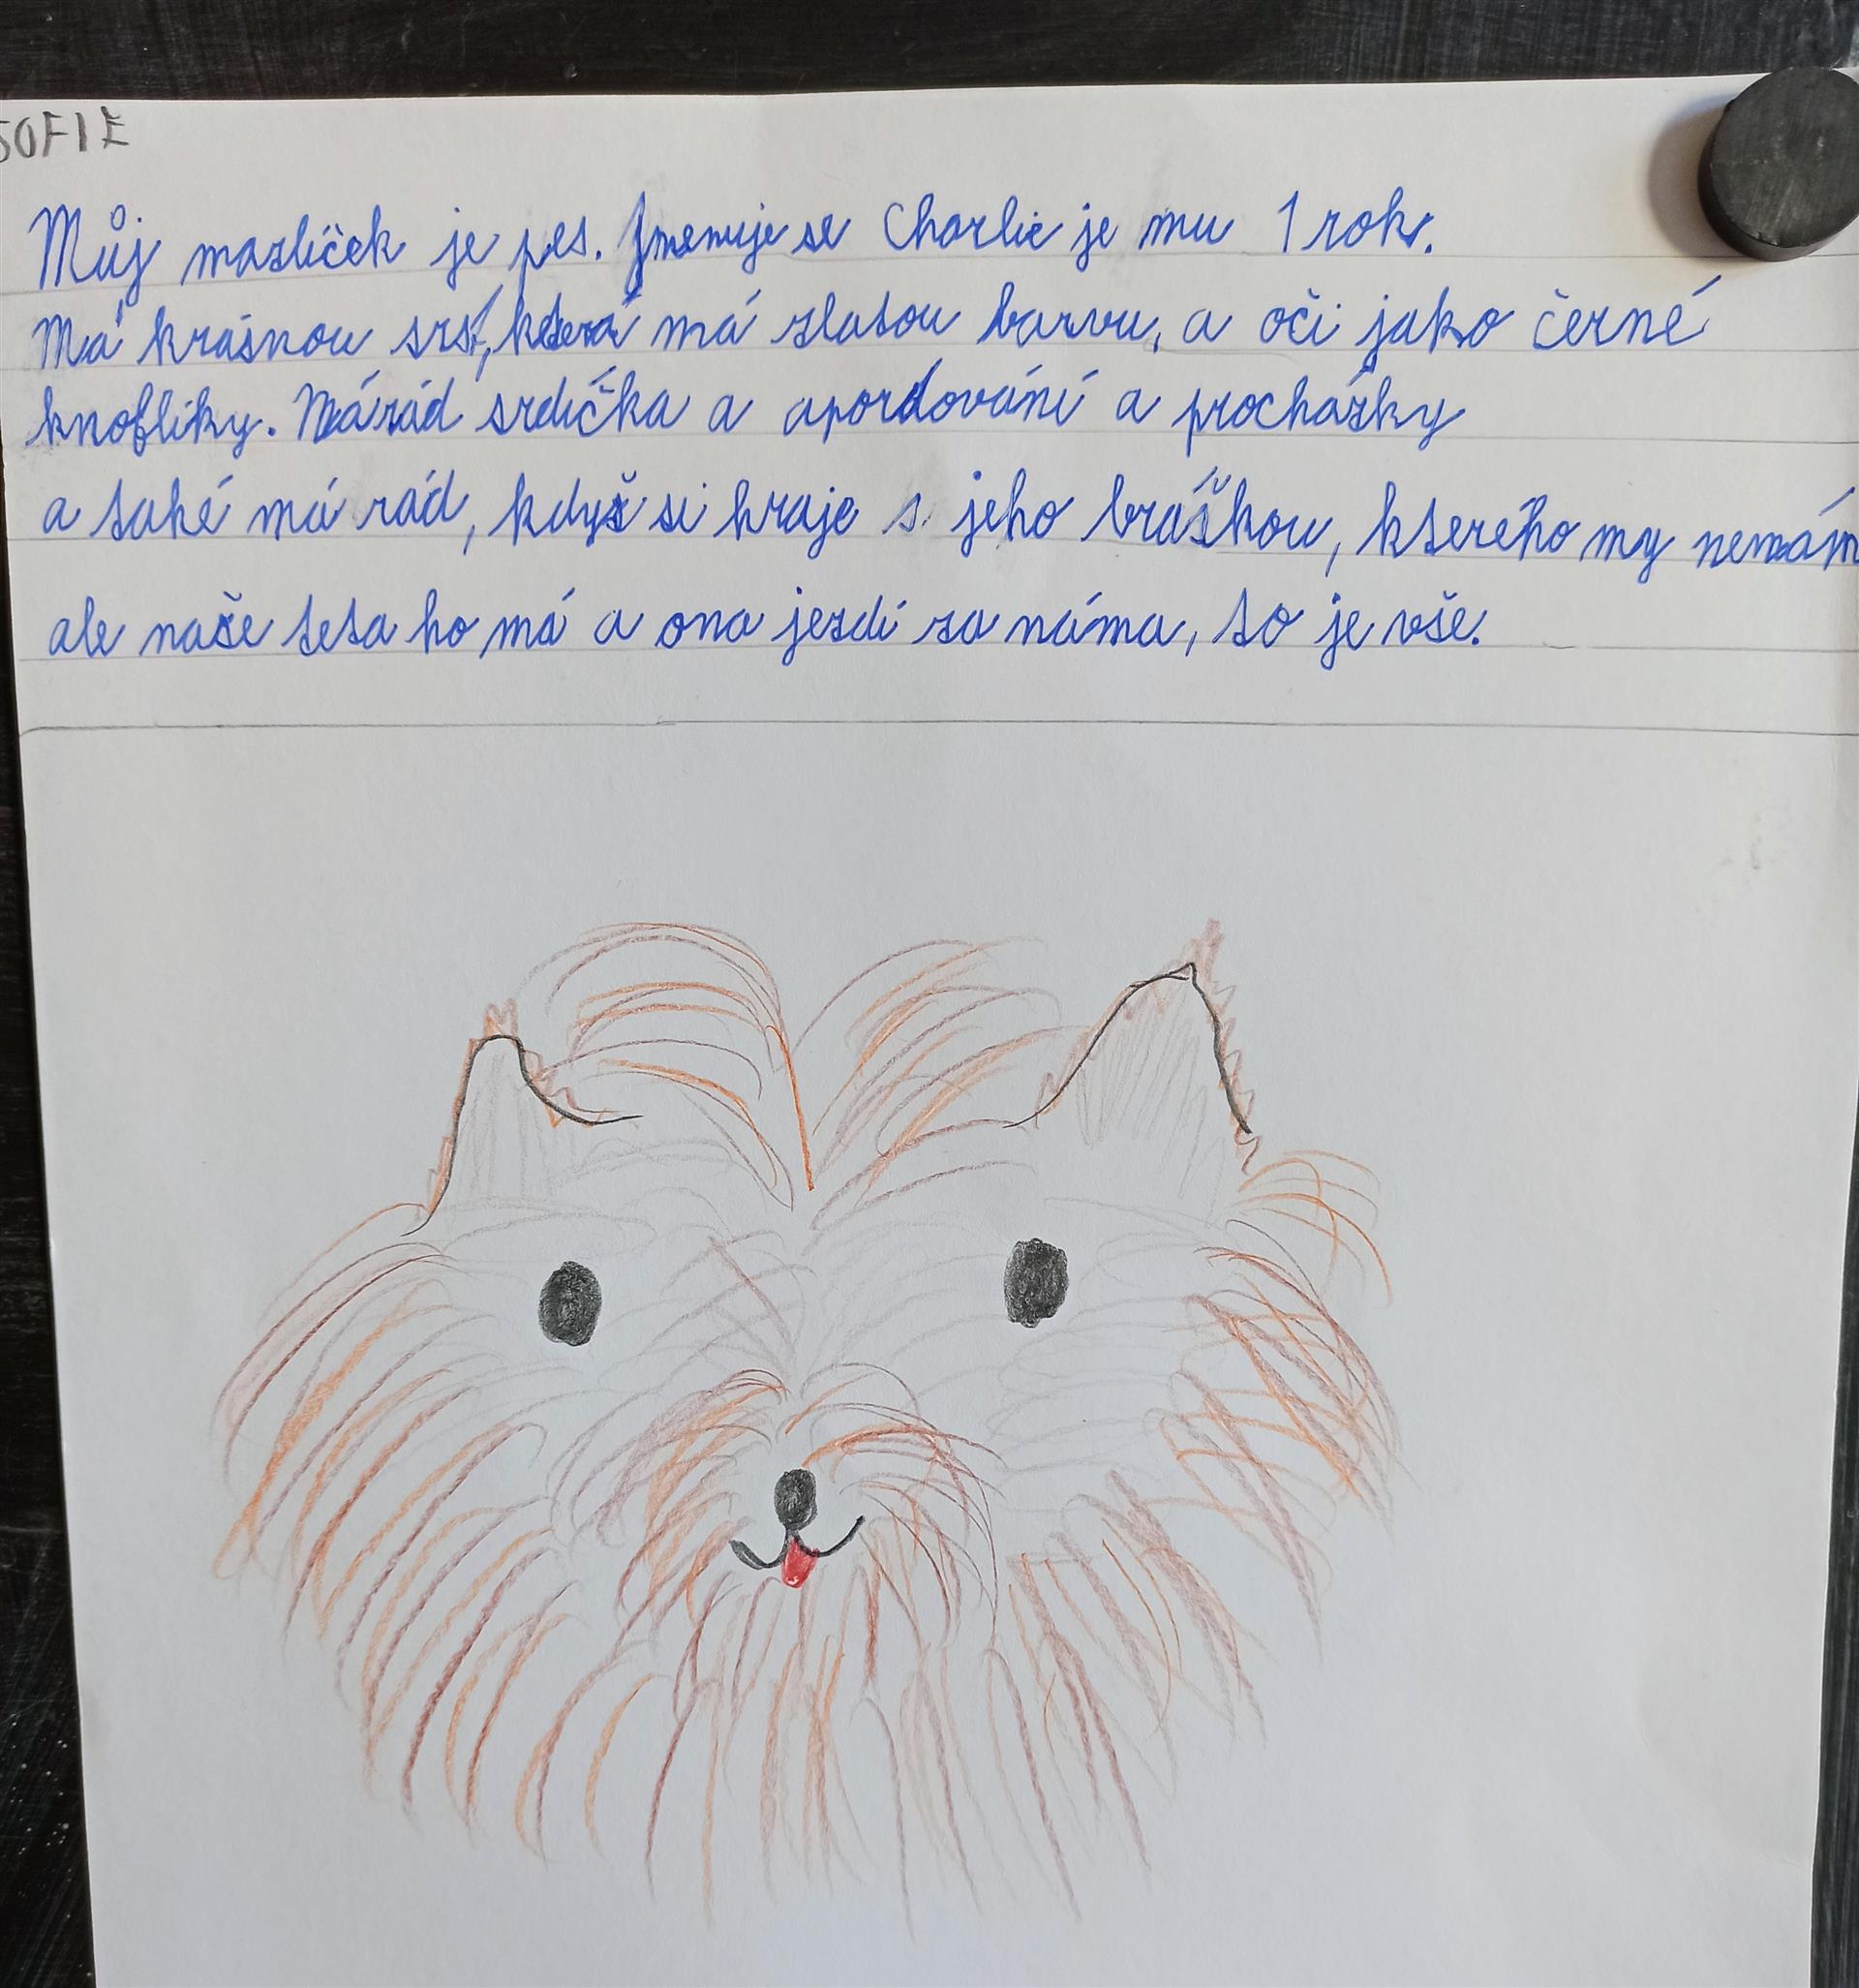 SOFIE
Můj mazlíček je pes. Jmenuje se Charlie je mu 1 rok.
Má krásnou srst, která má zlatou barvu, a oči jako černé
knoflíky. Má rád srdíčka a aportování a procházky
a také má rád, když si hraje s jeho bráškou, kterého my nemám
ale naše teta ho má a ona jezdí za náma, to je vše.